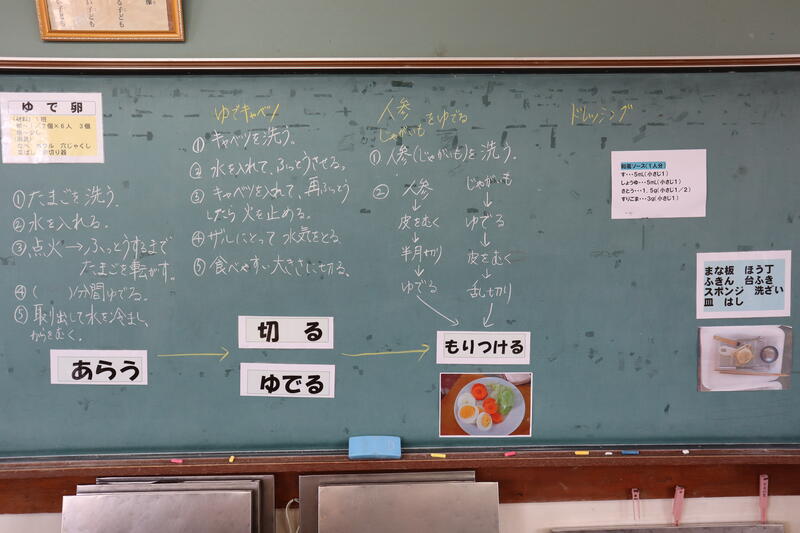 ゆで卵
①たまごを洗う。
②水を入れる。
③点火→ふっとうするまで
たまごを転がす。
④( )分間ゆでる。
⑤取り出して水を冷まし、
からをむく。
ゆでキャベツ
①キャベツを洗う。
②水を入れて、ふっとうさせる。
③キャベツを入れて、再ふっとう
したら火を止める。
④ザルにとって水気をとる。
⑤食べやすい大きさに切る。
人参
じゃがいもをゆでる
①人参(じゃがいも)を洗う。
② 人参 じゃがいも
↓ ↓
皮をむく ゆでる
↓ ↓
半月切り 皮をむく
↓ ↓
ゆでる 乱切り
ドレッシング
和風ソース(1人分)
す・・・5mL(小さじ1)
しょうゆ・・・5mL(小さじ1)
さとう・・・1.5g(小さじ1/2)
すりごま・・・3g(小さじ1)
まな板 ほう丁
ふきん 台ふき
スポンジ 洗ざい
皿 はし
あらう
切る
ゆでる
もりつける